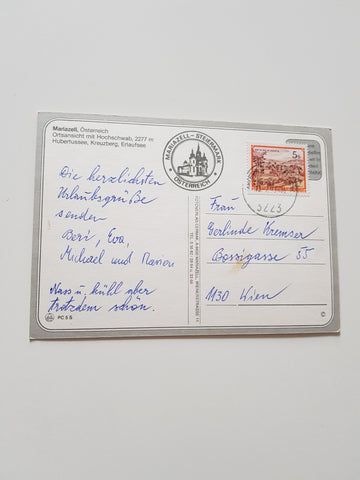 Mariazell, Österreich
Ortsansicht mit Hochschwab, 2277 m
Hubertussee, Kreuzberg, Erlaufsee
MARIAZELL - STEIERMARK
ÖSTERREICH
5
Die herzlichsten
Urlaubsgrüße
senden
Beri, Eva,
Michael und Marion
Nass u. kühl aber
trotzdem schön.
PC 5 S
Frau
Gerlinde Kremser
Bossigasse 55
1130 Wien
©